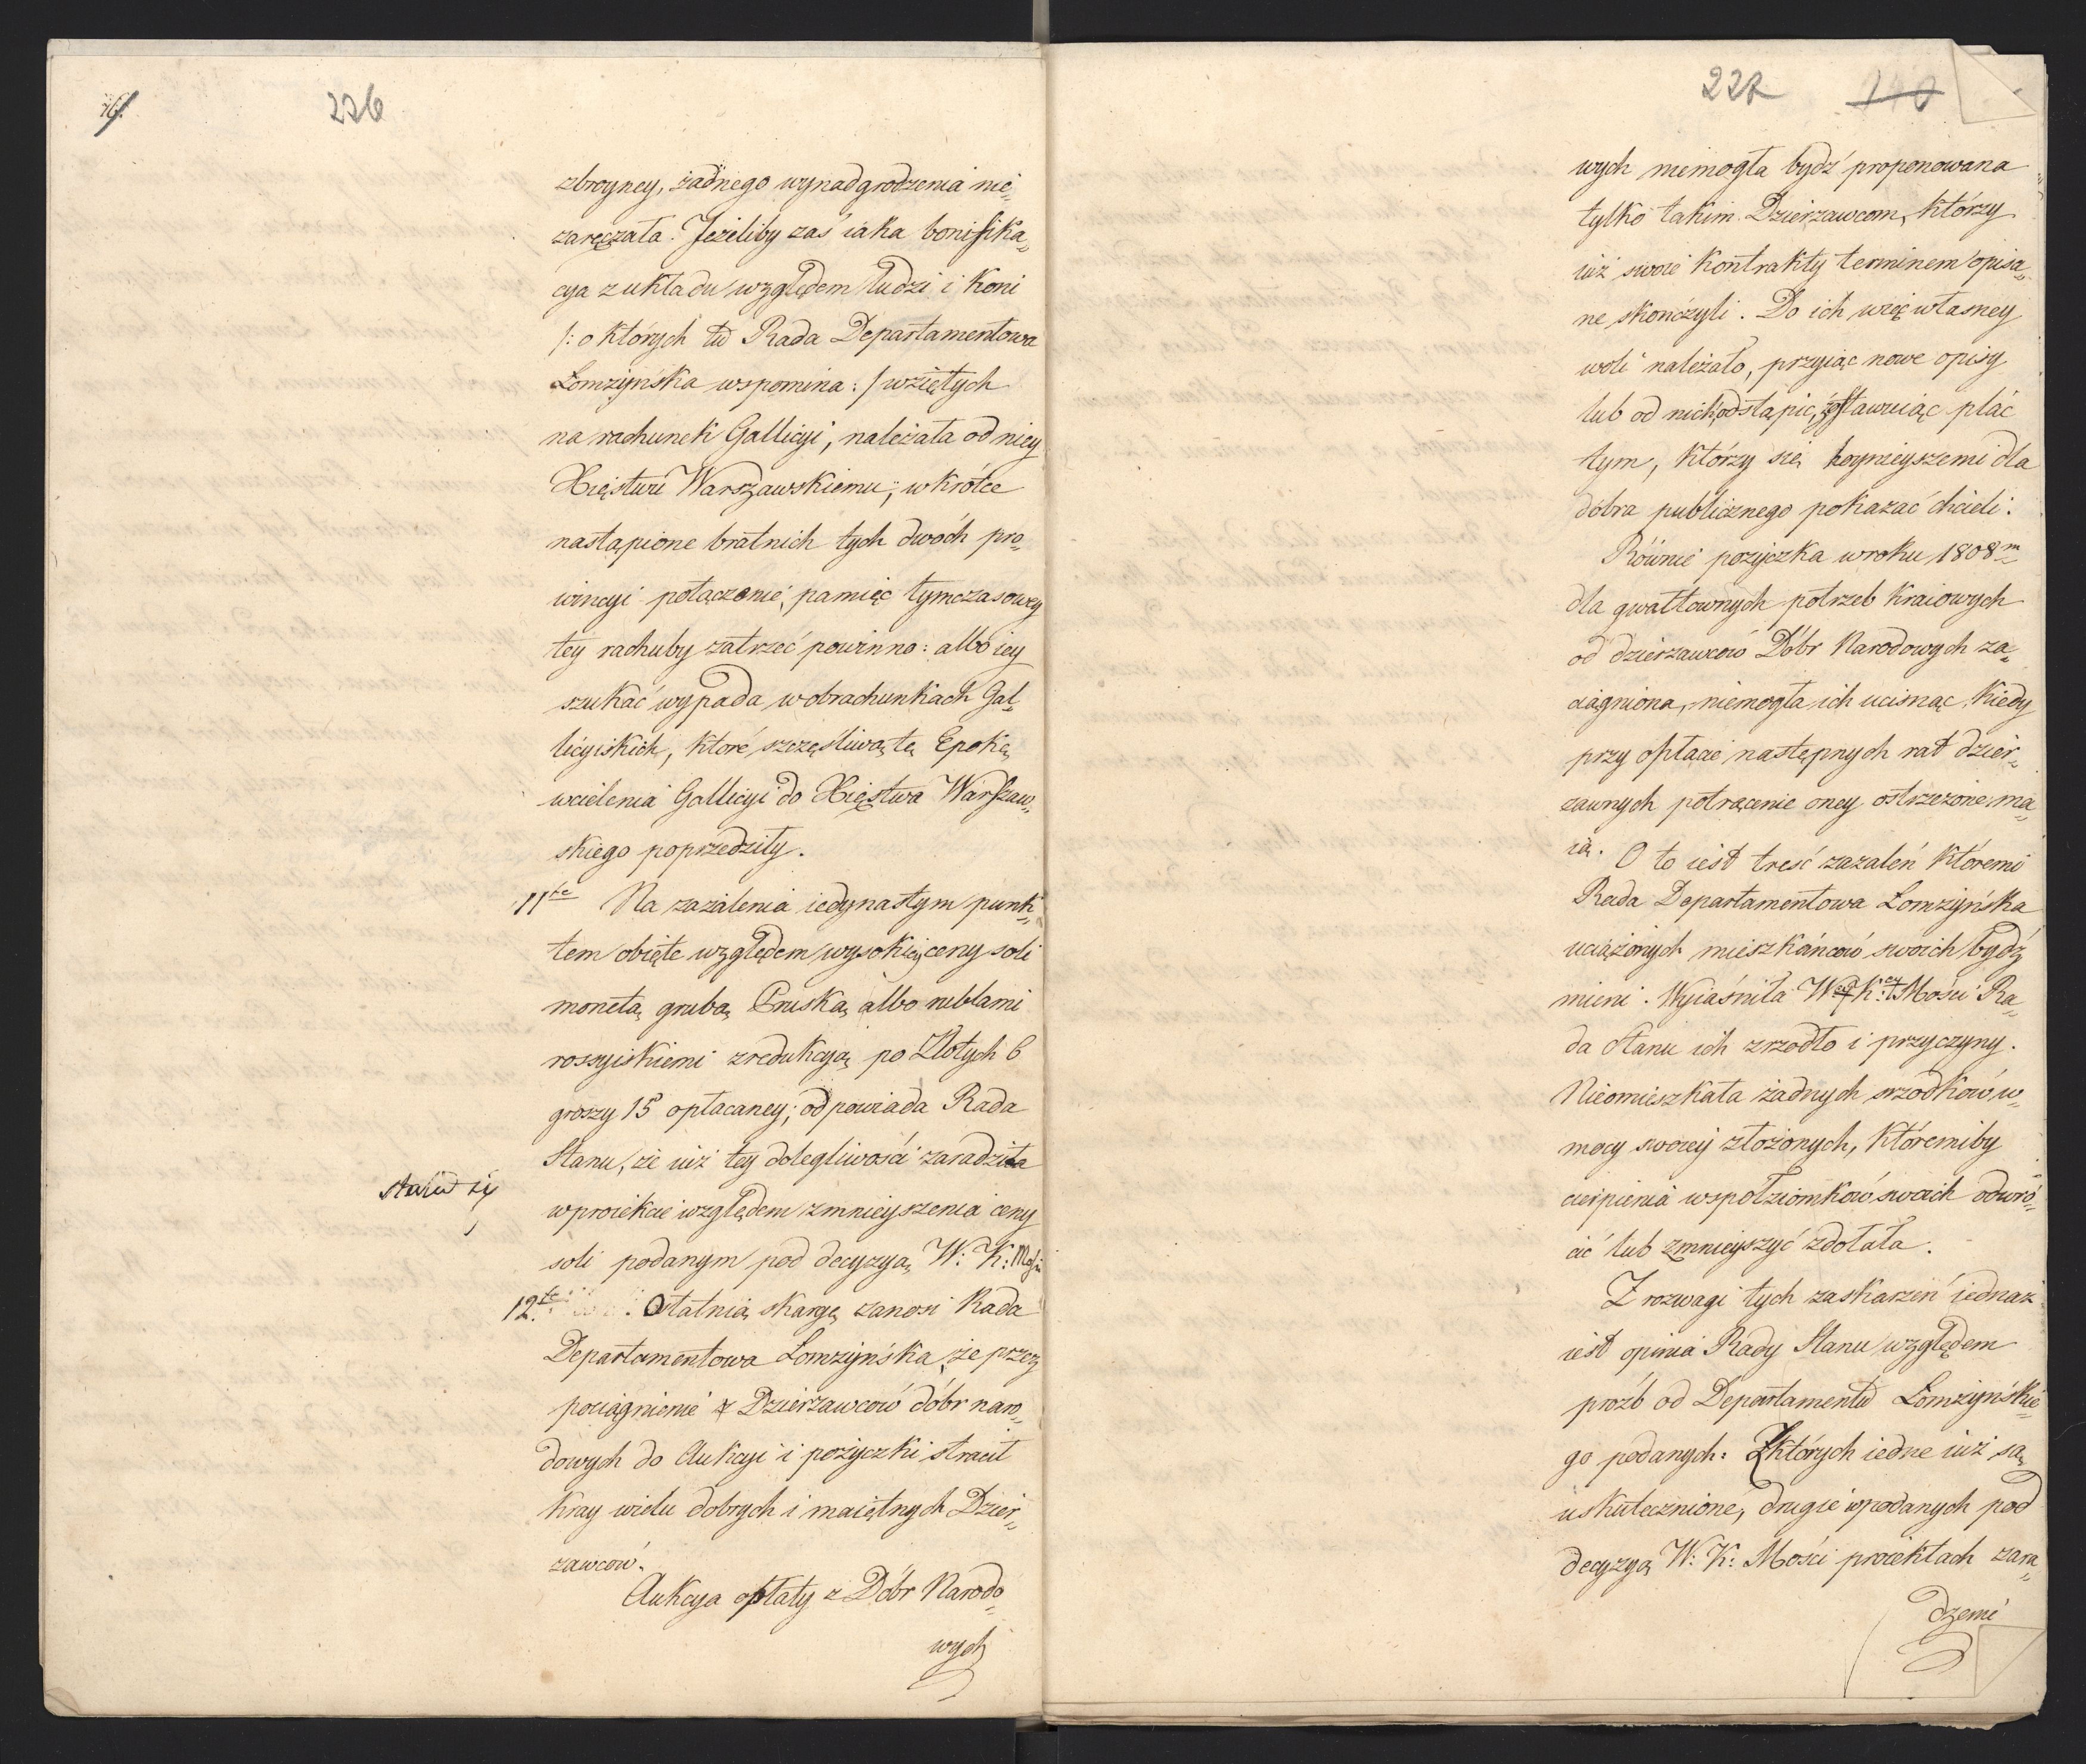 226
zbroyney, żadnego wynadgrodzenia nie„
zaręczała. Jeżeliby zaś iaka bonifika„
cya z układu względem ludzi i Koni
/: o których tu Rada Departamentowa
Łomżyńska wspomina :/ wziętych
na rachunek Gallicyi, należała od niey
Xięstwu Warszawskiemu; wkrótce
nastąpione bratnich tych dwóch pro„
wincyi połączenie, pamięć tymczasowey
tey rachuby zatrzeć powinno: albo iey
szukać wypada w obrachunkach Gal„
licyiskich, które szczęśliwą tę Epokę
wcielenia Gallicyi do Xięstwa Warszaw„
skiego poprzedziły.
11te Na zażalenia iedynastym punk„
tem obięte względem wysokiey ceny soli
monetą grubą Pruską albo rublami
rossyiskiemi z redukcyą po Złotych 6
groszy 15 opłacaney; odpowiada Rada
Stanu, że iuż tey dolegliwości zaradziła
stało się
w proiekcie względem zmnieyszenia ceny
soli podanym pod decyzyą W: K: Mości
12te. Ostatnią skargę zanosi Rada
Departamentowa Łomżyńska, że przez
pociągnienie z Dzierżawców dóbr naro„
dowych do Aukcyi i pożyczki stracił
Kray wielu dobrych i maiętnych Dzier„
żawców.
Aukcya opłaty z Dóbr Narodo„
wych
227 140
wych niemogła bydź proponowana
tylko takim Dzierżawcom, którzy
iuż swoie Kontrakty terminem opisa„
ne skończyli. Do ich więc własney
woli należało, przyiąć nowe opisy
lub od nich odstąpić, zostawuiąc plac
tym, którzy się hoynieyszemi dla
dobra publicznego pokazać chcieli.
Równie pożyczka w roku 1808m
dla gwałtownych potrzeb kraiowych
od dzierżawców Dóbr Narodowych za„
ciągniona, niemogła ich ucisnąć, Kiedy
przy opłacie następnych rat dzier„
żawnych potrącenie oney ostrzeżone ma„
ią. Oto iest treść zażaleń któremi
Rada Departamentowa Łomżyńska
uciążonych mieszkańców swoich bydź
mieni. Wyiaśniła W. K. Mości Ra„
da Stanu ich zrzodło i przyczyny.
Nieomieszkała żadnych srzodków w„
mocy swoiey złożonych, któremiby
cierpienia współziomków swoich odwró„
cić lub zmnieyszyć zdołała.
Z rozwagi tych zaskarżeń iednaż
iest opinia Rady Stanu względem
prozb od Departamentu Łomżyńskie„
go podanych: Z których iedne iuż są
uskutecznione, drugie w podanych pod
decyzyą W: K: Mości proiektach zara„
dzeni